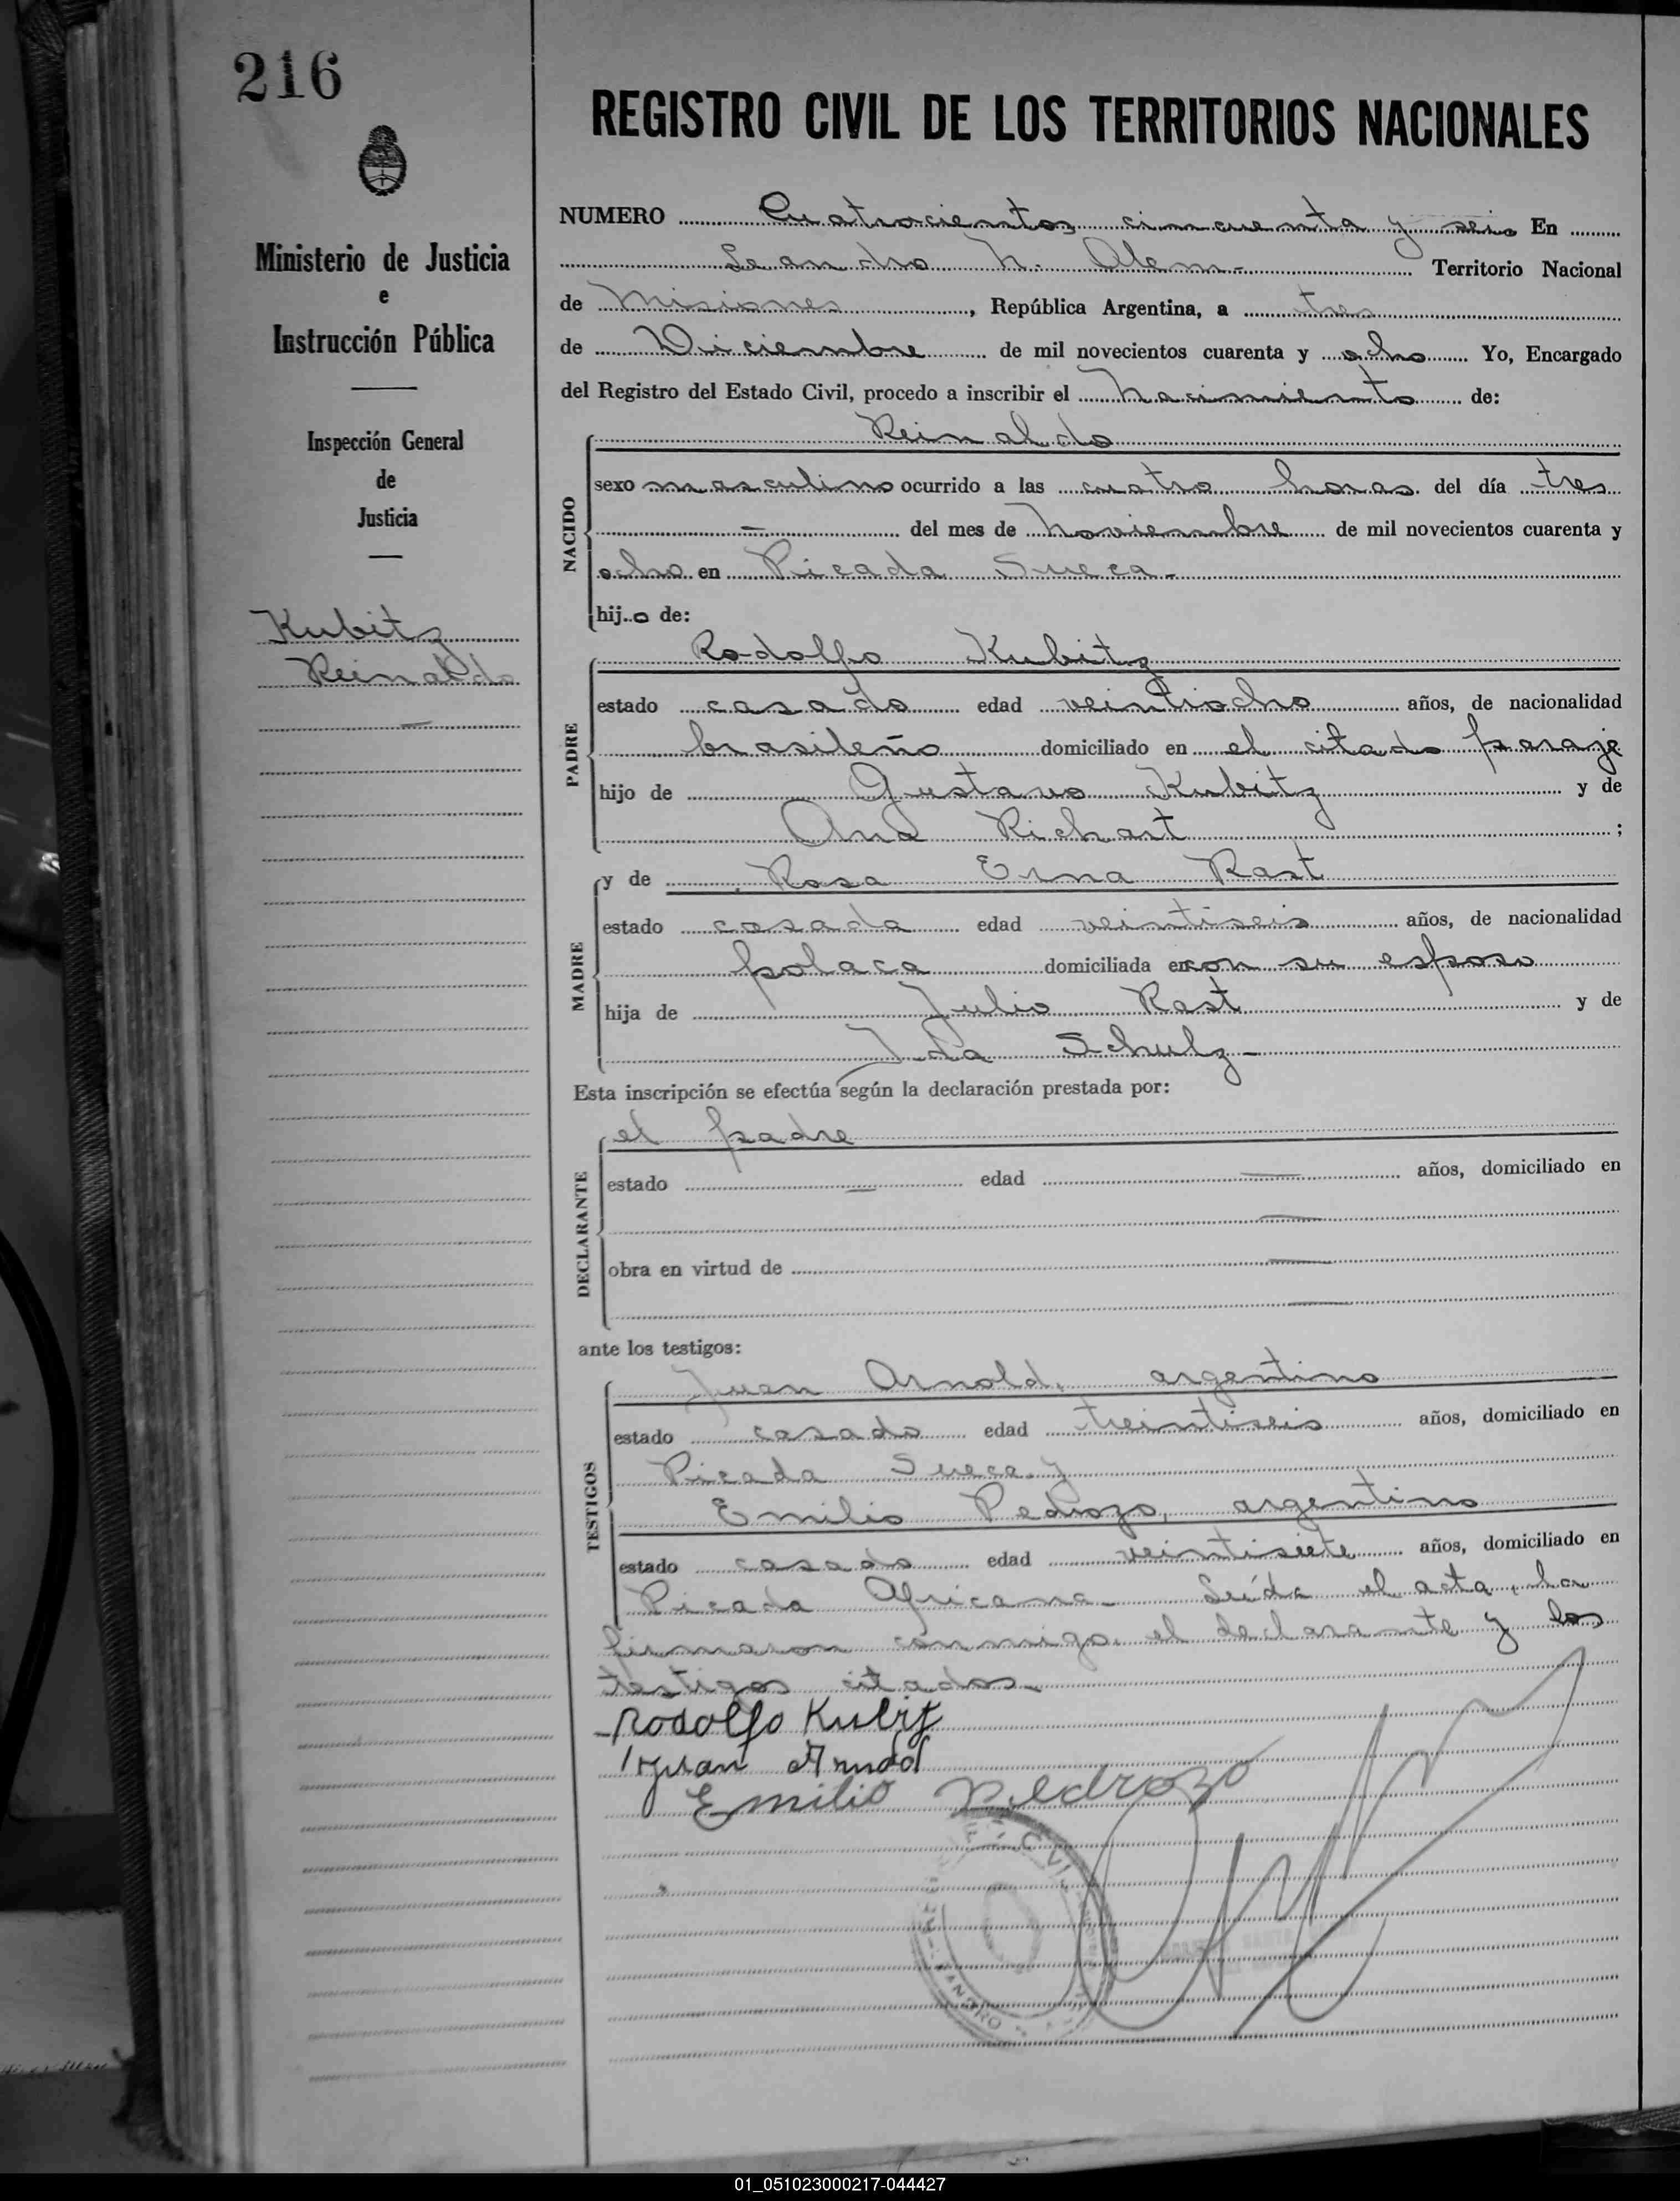 216
Ministerio de Justicia
e
Instrucción Pública
Inspección General
de
Justicia
Kubitz
Reinaldo
REGISTRO CIVIL DE LOS TERRITORIOS NACIONALES
NUMERO Cuatrocientos cincuenta y seis En
Leandro N. Alem.- Territorio Nacional
de Misiones, República Argentina, a tres
de Diciembre de mil novecientos cuarenta y ocho Yo, Encargado
del Registro del Estado Civil, procedo a inscribir el nacimiento de:
Reinaldo
NACIDO
sexo masculino ocurrido a las cuatro horas del día tres
— del mes de noviembre de mil novecientos cuarenta y
ocho en Picada Sueca.-
hijo de:
Rodolfo Kubitz
PADRE
estado casado edad veintiocho años, de nacionalidad
brasileño domiciliado en el citado paraje
hijo de Gustavo Kubitz y de
Ana Richart ;
y de Rosa Erna Rast
MADRE
estado casada edad veintiseis años, de nacionalidad
polaca domiciliada en con su esposo
hija de Julio Rast y de
Ida Schulz-
Esta inscripción se efectúa según la declaración prestada por:
el padre
DECLARANTE
estado — edad — años, domiciliado en
—
obra en virtud de —
—
ante los testigos:
Juan Arnold, argentino
TESTIGOS
estado casado edad treintiseis años, domiciliado en
Picada Sueca y
Emilio Pedrozo, argentino
estado casado edad veintisiete años, domiciliado en
Picada Africana.- Leída el acta, la
firmaron conmigo el declarante y los
testigos citados.-
Rodolfo Kubitz
Juan Arnold
Emilio Pedrozo
01_051023000217-044427